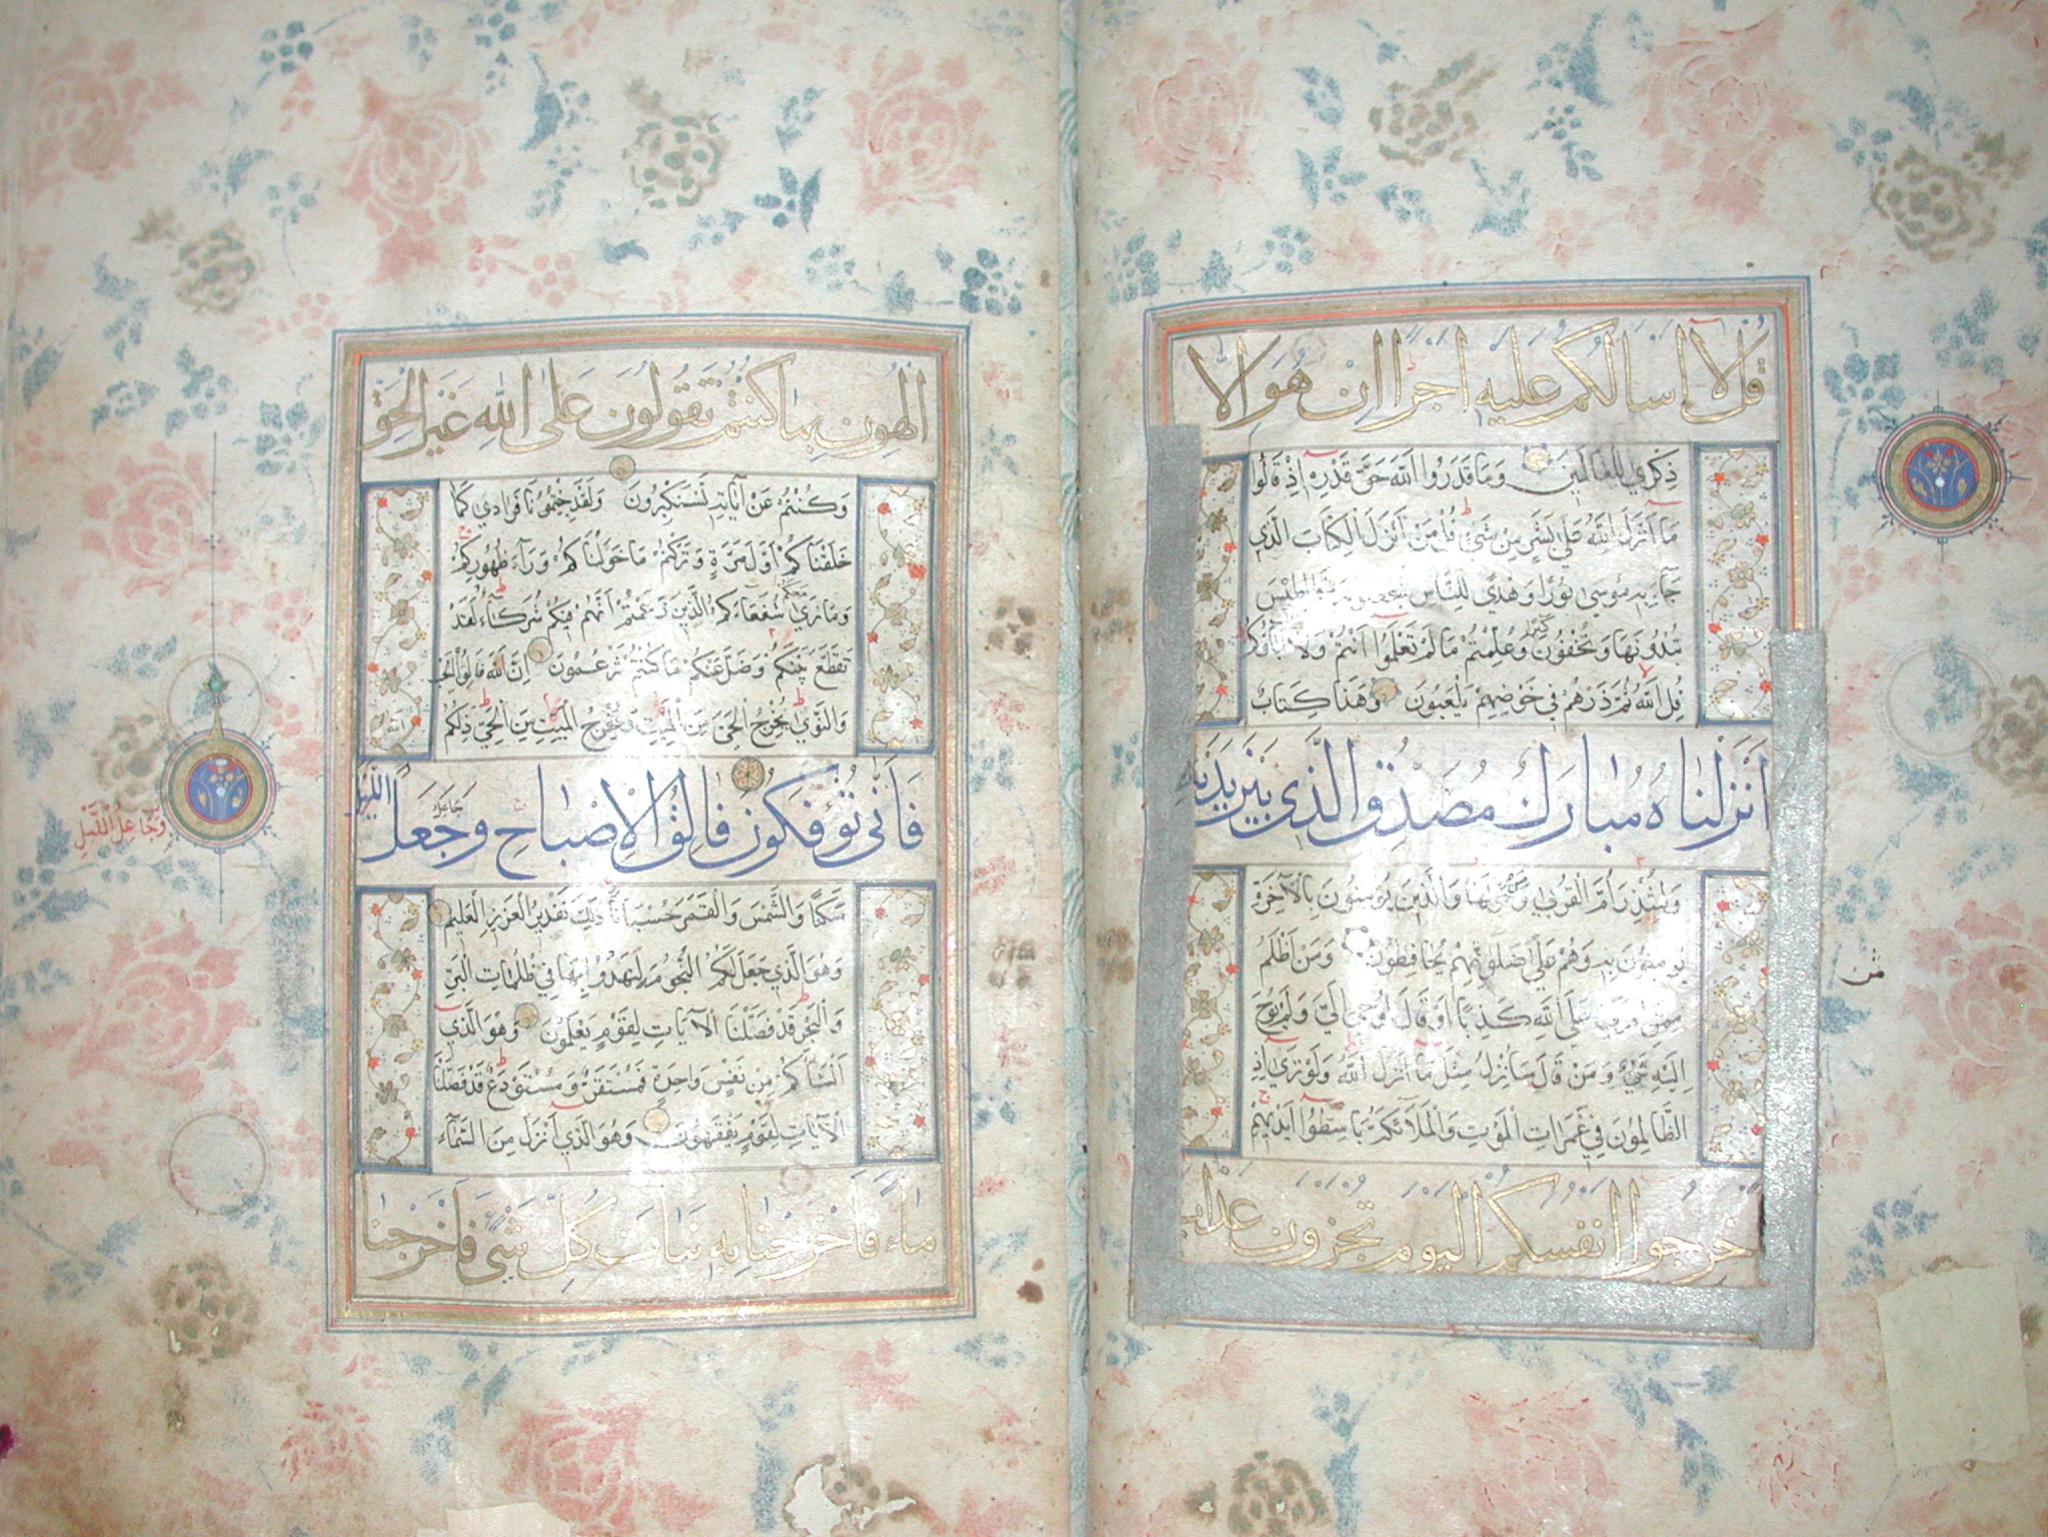 قل لا اسالكم عليه اجرا ان هو الا
ذكري للعالمين وما قدروا الله حق قدره اذ قالوا
ما انزل الله علي بشر من شيء قل من انزل الكتاب الذي
جاء به موسى نورا وهدي للناس
تبدونها وتخفون كثيرا وعلمتم ما لم تعلموا انتم ولا اباؤكم
قل الله ثم ذرهم في خوضهم يلعبون وهذا كتاب
انزلناه مبارك مصدق الذي بين يديه
ولتنذر ام القري ومن حولها والذين يؤمنون بالاخرة
يؤمنون به وهم علي صلوتهم يحافظون ومن اظلم
ممن افتري علي الله كذبا او قال اوحي الي ولم يوح
اليه شيء ومن قال سانزل مثل ما انزل الله ولو تري اذ
الظالمون في غمرات الموت والملائكة باسطوا ايديهم
خرجوا انفسكم اليوم تجزون عذاب
الهون بما كنتم تقولون على الله غير الحق
وكنتم عن آياته تستكبرون ولقد جئتمونا فرادي كما
خلقناكم اول مرة وتركتم ما خولناكم وراء ظهوركم
وما نري معكم شفعاءكم الذين زعمتم انهم فيكم شركاء لقد
تقطع بينكم وضل عنكم ما كنتم تزعمون ان الله فالق الحب
والنوي يخرج الحي من الميت ومخرج الميت من الحي ذلكم
الله
فانى تؤفكون فالق الاصباح وجعل الليل
جاعل
وجاعل الليل
سكنا والشمس والقمر حسبانا ذلك تقدير العزيز العليم
وهو الذي جعل لكم النجوم لتهتدوا بها في ظلمات البر
والبحر قد فصلنا الايات لقوم يعلمون وهو الذي
انشاكم من نفس واحدة فمستقر ومستودع قد فصلنا
الايات لقوم يفقهون وهو الذي انزل من السماء
ماء فاخرجنا به نبات كل شي فاخرجنا